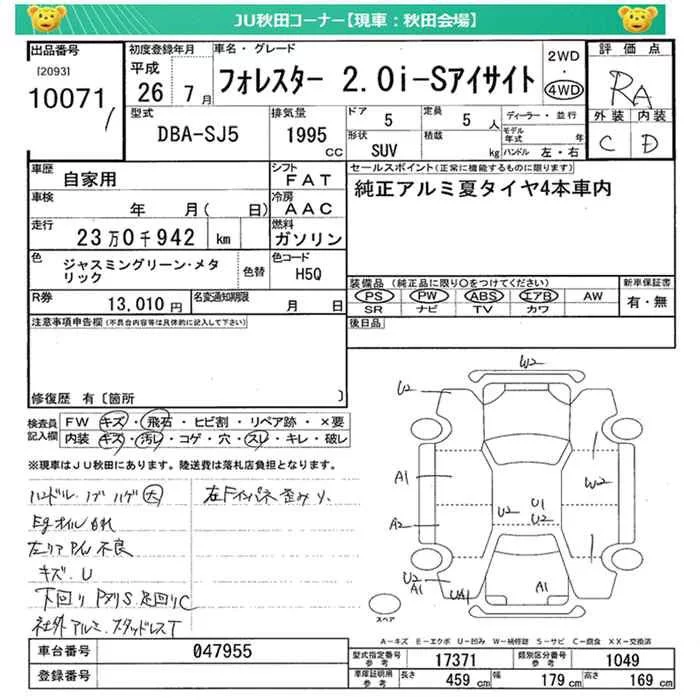 JU秋田コーナー【現車：秋田会場】
出品番号
[2093]
10071
初度登録年月
平成
26 7月
車名・グレード
フォレスター 2.0i-Sアイサイト
2WD
・
4WD
評価点
RA
外装 内装
C D
型式
DBA-SJ5
排気量
1995
cc
ドア
5
定員
5人
形状
SUV
積載
kg
ディーラー・並行
モデル年式 年
ハンドル 左・右
車歴
自家用
シフト
FAT
車検
年 月( 日)
冷房
AAC
走行
23万0千942 km
燃料
ガソリン
色
ジャスミングリーン・メタリック
色替
色コード
H5Q
R券
13,010円
名変通知期限
月 日
セールスポイント(正常に機能するものに限ります)
純正アルミ夏タイヤ4本車内
装備品(純正品に限り○をつけてください)
PS PW ABS エアB AW
SR ナビ TV カワ
新車保証書
有・無
後日品
注意事項申告欄(不具合内容等は具体的に記入して下さい)
修復歴 有〔箇所 〕
検査員記入欄
FW キズ・飛石・ヒビ割・リペア跡・×要
内装 キズ・汚レ・コゲ・穴・スレ・キレ・破レ
※現車はJU秋田にあります。陸送費は落札店負担となります。
ハンドル、ノブ ハゲ 大
Egオイルもれ
左リアP/W不良
キズ、U
下回りPサビS、足回りC
社外アルミ、スタッドレスT
左Fインパネ歪み有り、
W2
U2
A1
A2
U2
A1
UA1
U2
U1
U2
W2
A1
スペア
A－キズ E－エクボ U－凹み W－補修跡 S－サビ C－腐食 XX－交換済
車台番号
047955
登録番号
型式指定番号
参考
17371
類別区分番号
参考
1049
車庫証明用
参考
長さ
459 cm
幅
179 cm
高さ
169 cm